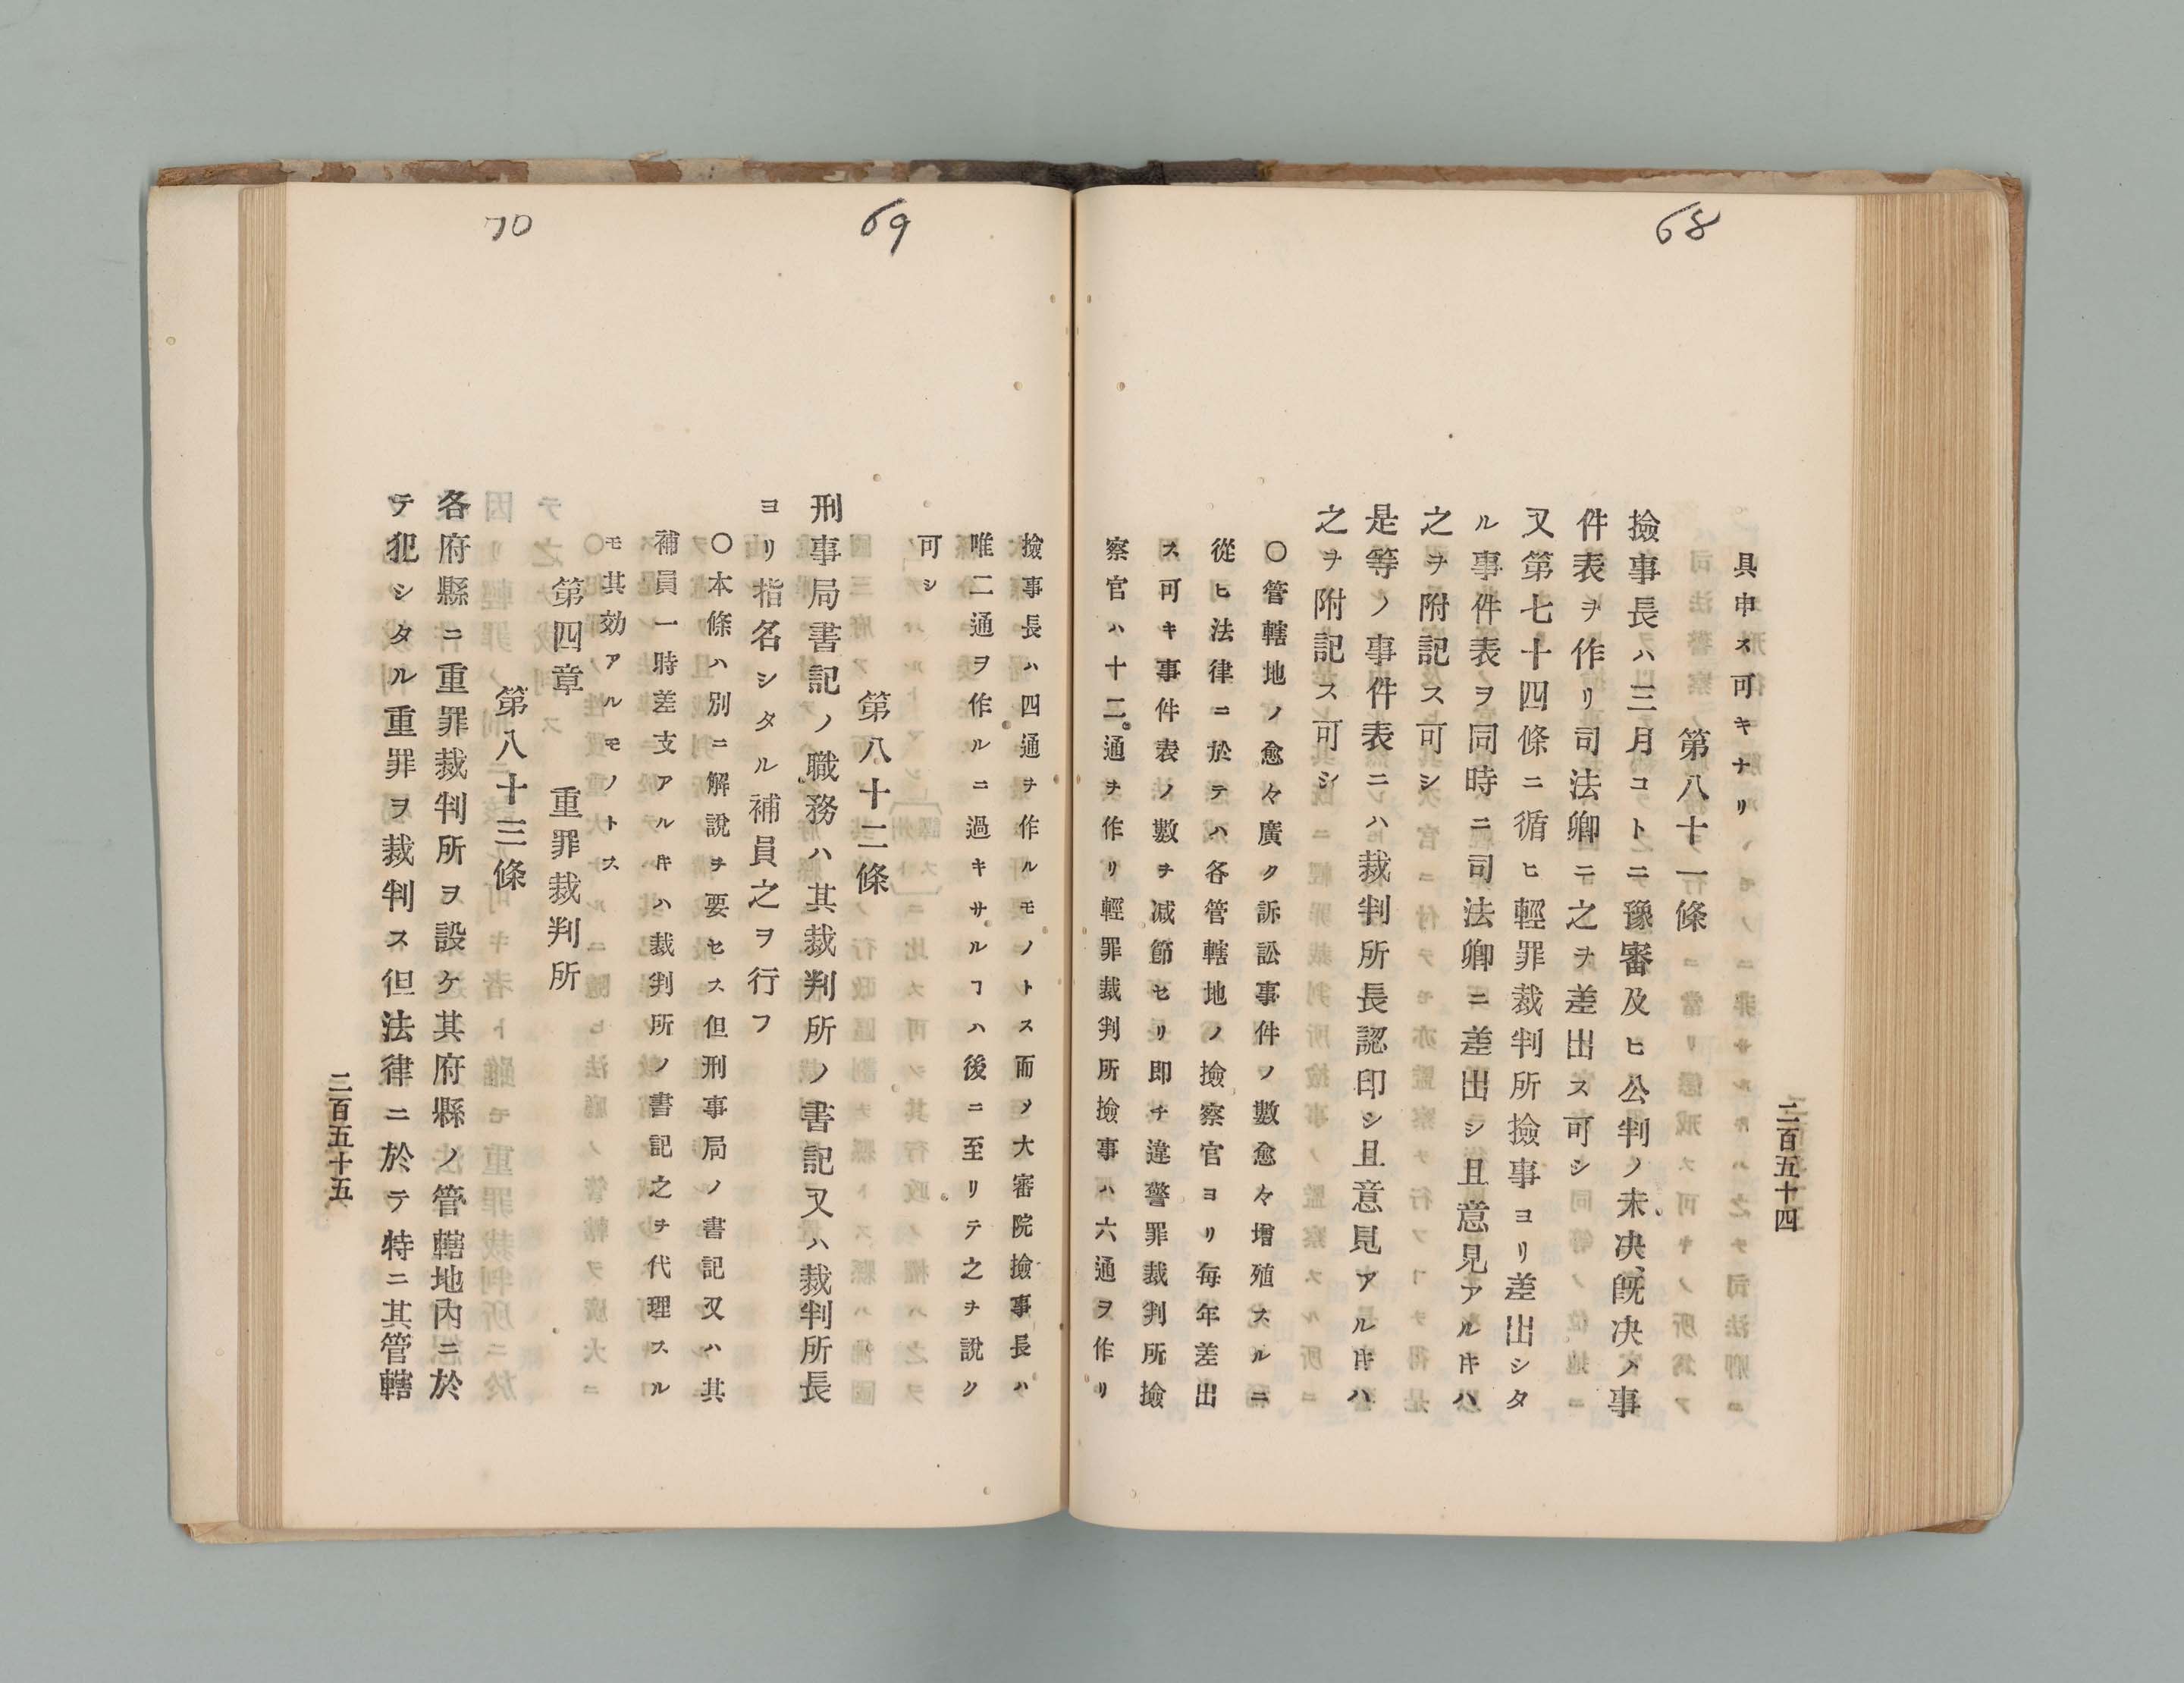 68
二百五十四
具申ス可キナリ
第八十一條
撿事長ハ三月コトニ豫審及ヒ公判ノ未决、既决ノ事
件表ヲ作リ司法卿ニ之ヲ差出ス可シ
又第七十四條ニ循ヒ輕罪裁判所撿事ヨリ差出シタ
ル事件表ヲ同時ニ司法卿ニ差出シ且意見アルキハ
之ヲ附記ス可シ
是等ノ事件表ニハ裁判所長認印シ且意見アルキハ
之ヲ附記ス可シ
〇管轄地ノ愈々廣ク訴訟事件ノ數愈々增殖スルニ
從ヒ法律ニ於テハ各管轄地ノ撿察官ヨリ每年差出
ス可キ事件表ノ數ヲ减節セリ即チ違警罪裁判所撿
察官ハ十二通ヲ作リ輕罪裁判所撿事ハ六通ヲ作リ
69
撿事長ハ四通ヲ作ルモノトス而ソ大審院撿事長ハ
唯二通ヲ作ルニ過キサルヿハ後ニ至リテ之ヲ說ク
可シ
第八十二條
刑事局書記ノ職務ハ其裁判所ノ書記又ハ裁判所長
ヨリ指名シタル補員之ヲ行フ
〇本條ハ別ニ解說ヲ要セス但刑事局ノ書記又ハ其
補員一時差支アルキハ裁判所ノ書記之ヲ代理スル
モ其効アルモノトス
70
第四章　重罪裁判所
第八十三條
各府縣ニ重罪裁判所ヲ設ケ其府縣ノ管轄地內ニ於
テ犯シタル重罪ヲ裁判ス但法律ニ於テ特ニ其管轄
二百五十五